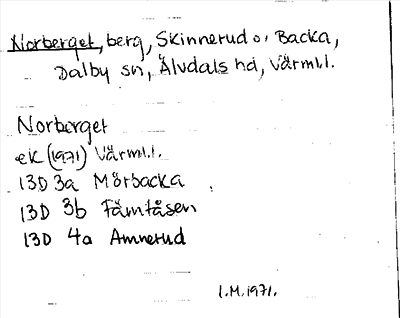 Norberget, berg, Skinnerud o. Backa,
Dalby sn, Älvdals hd, Värml.
Norberget
ek (1971) Värml.
13D 3a Mörbacka
13D 3b Fämtåsen
13D 4a Amnerud
I.M. 1971.